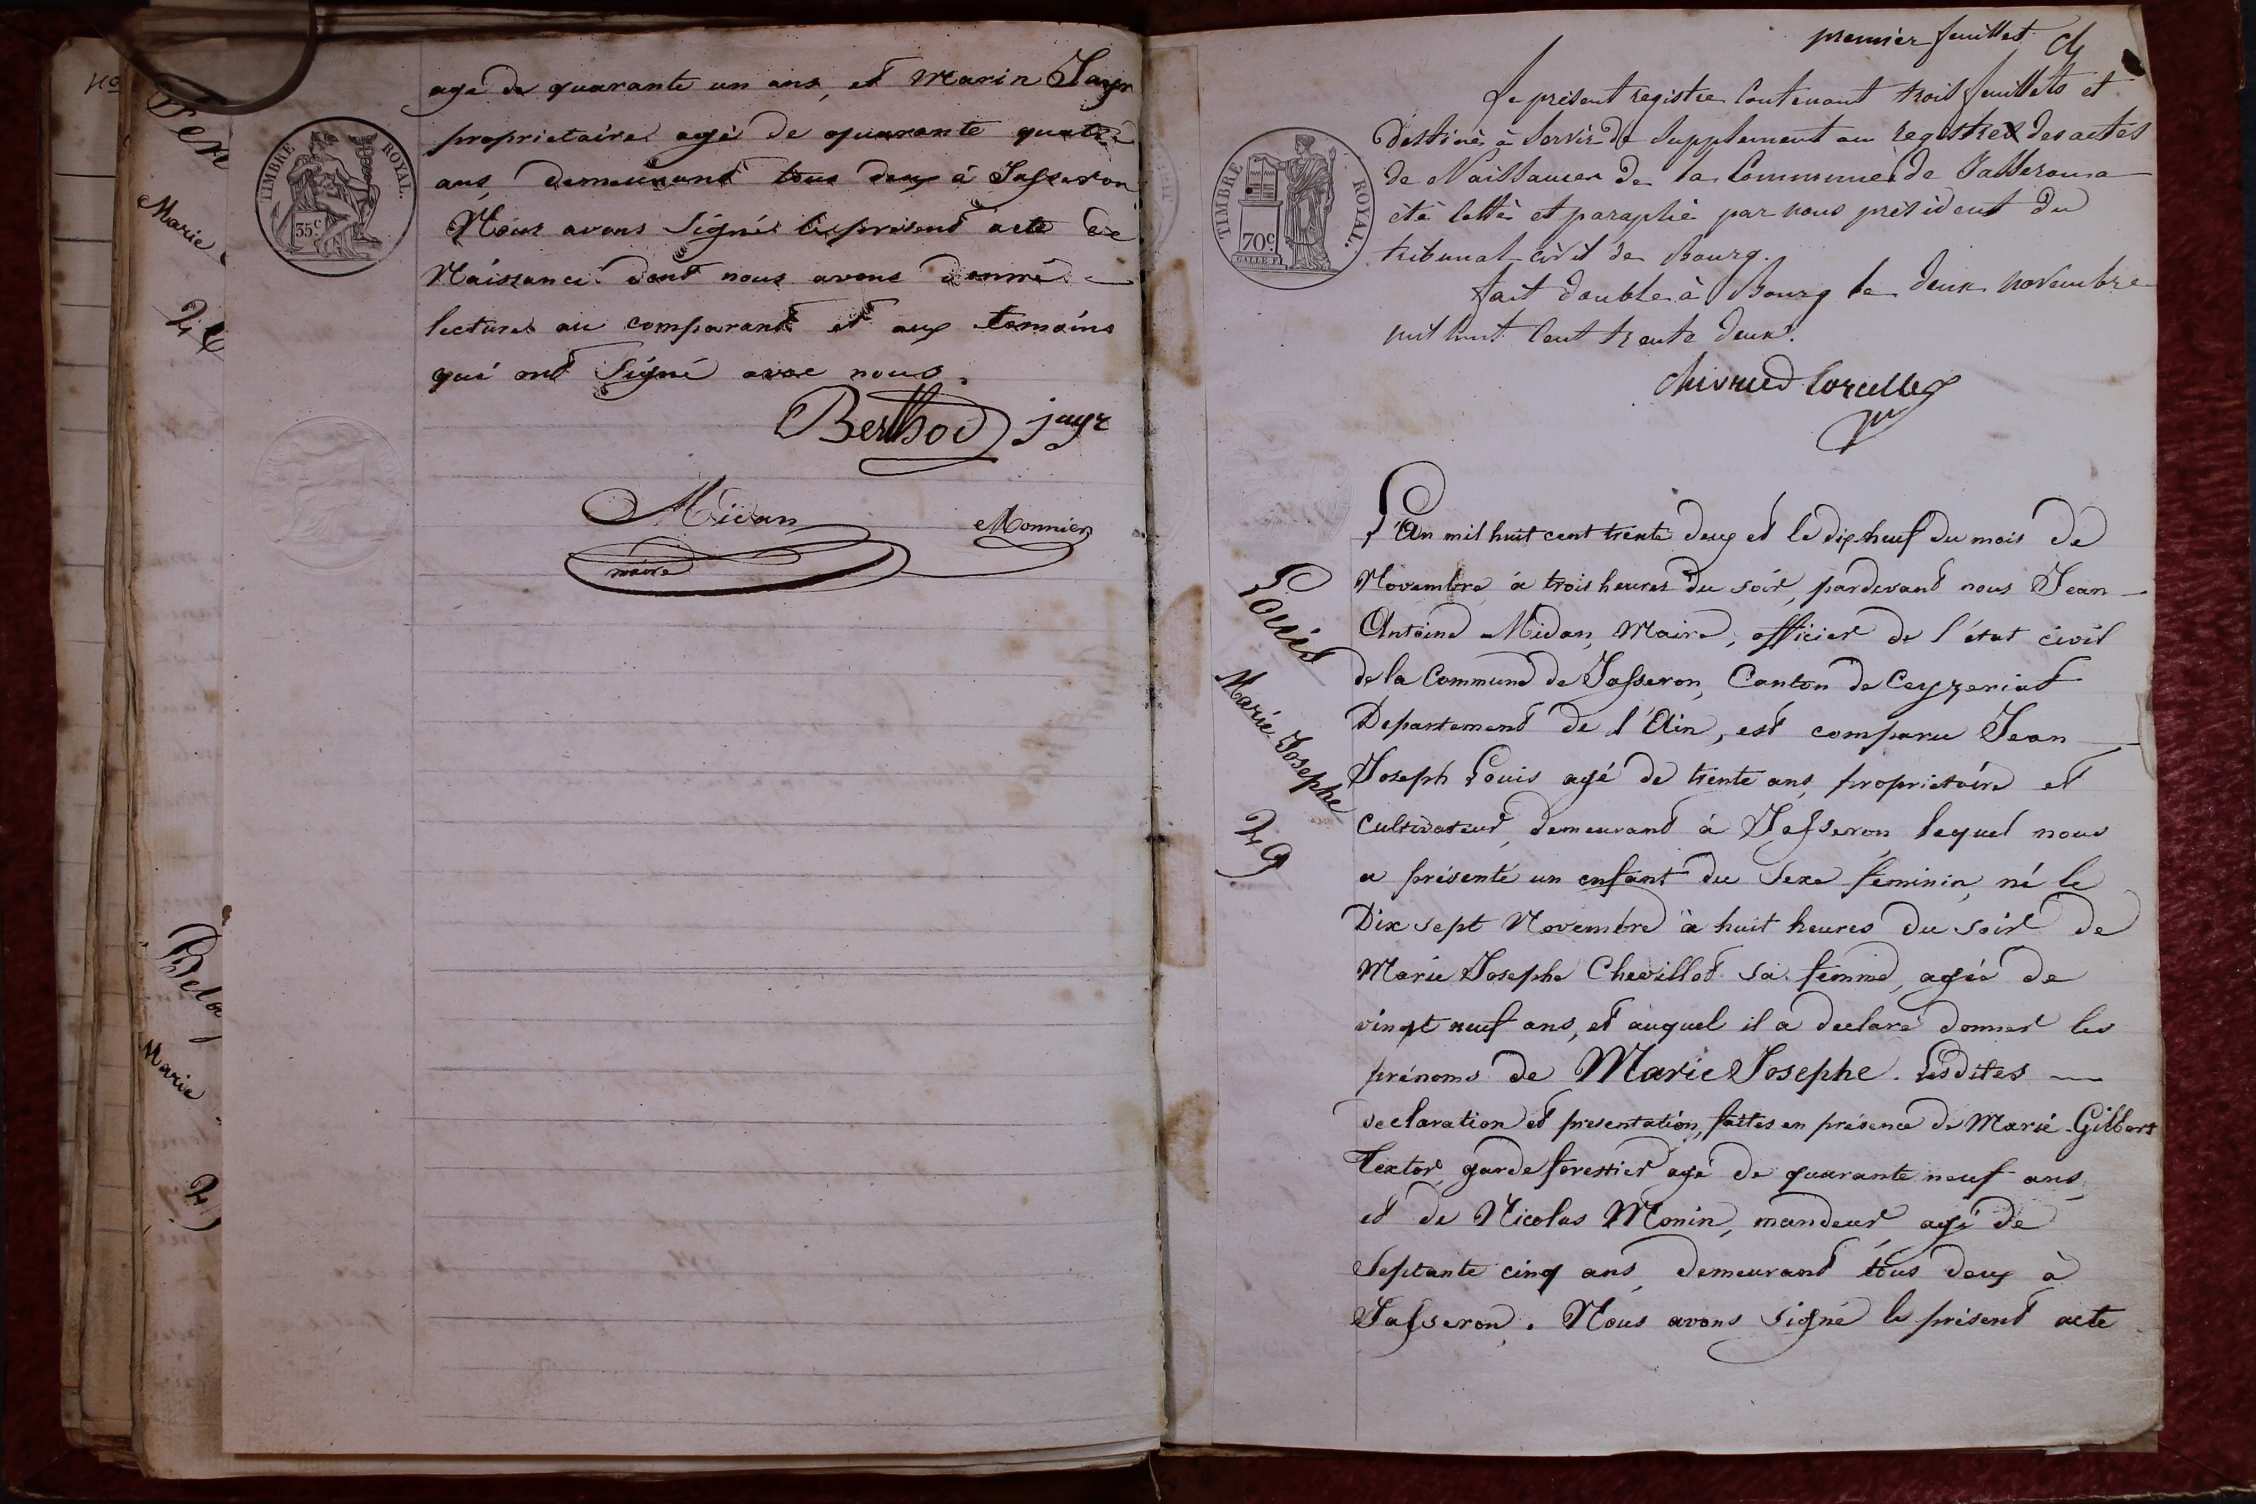 agé de quarante un ans, et Marin Jayr
proprietaire agé de quarante quatre
ans demeurant tous deux à Jasseron
Nous avons signé le présent acte de
Naissance dont nous avons donné
lecture au comparant et aux temoins
qui ont signé avec nous.
Berthod jayr
Midan Monnier
maire
TIMBRE ROYAL.
35 c
Marie
2
Marie
2
premier feuillet
Le présent registre contenant trois feuillets et
destiné à servir de supplement au registre des actes
de Naissances de la Commune de Jasseron a
été cotté et paraphé par nous président du
tribunal civil de Bourg.
fait double à Bourg le deux novembre
mil huit cent trente deux.
TIMBRE ROYAL.
70 c
L'An mil huit cent trente deux et le dix neuf du mois de
Novembre à trois heures du soir, pardevant nous Jean
Antoine Midan, Maire, officier de l'état civil
de la Commune de Jasseron, Canton de Ceyzeriat
Departement de l'Ain, est comparu Jean
Joseph Louis agé de trente ans, proprietaire et
cultivateur, demeurant à Jasseron, lequel nous
a présenté un enfant du sexe féminin, né le
Dix sept Novembre à huit heures du soir de
Marie Josephe Chevillot sa femme, agée de
vingt neuf ans, et auquel il a declaré donner les
prénoms de Marie Josephe. Lesdites
declaration et presentation, faites en présence de Marie Gilbert
Textor, garde forestier agé de quarante neuf ans,
et de Nicolas Monin, mandeur, agé de
Septante cinq ans, demeurant tous deux à
Jasseron. Nous avons signé le présent acte
Louis
Marie Josephe
29